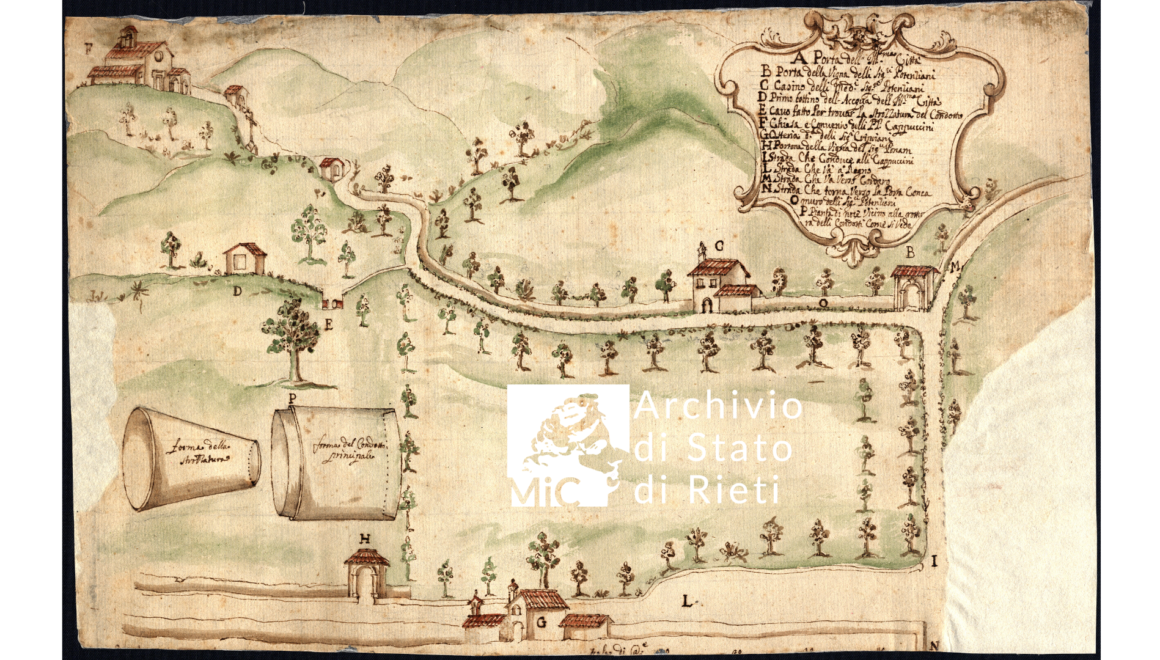 F
A Porta dell' Ill.ma Città
B Porta della Vigna delli Sig.ri Potentiani
C Casino delli Med.i Sig.ri Potentiani
D Primo bottino dell' Acqua dell' Ill.ma Città
E Cavo fatto Per trovar la strozzatura del Condotto
F Chiesa e Convento delli PP. Cappuccini
G Osteria delli Sig.ri
H Portone della Vigna del Sig.re
I Strada Che Conduce alli Cappuccini
L Strada Che Va a
M Strada Che Va Verso
N Strada Che torna Verso la Porta Conca
O muro delli Sig.ri Potentiani
P Pianta di noce Vicino alla
ra delli Condotti Come si Vede
C
B
M
D
O
E
P
forma della
strozzatura
forma del Condotto
principale
Archivio
di Stato
di Rieti
MiC
H
I
L.
G
N